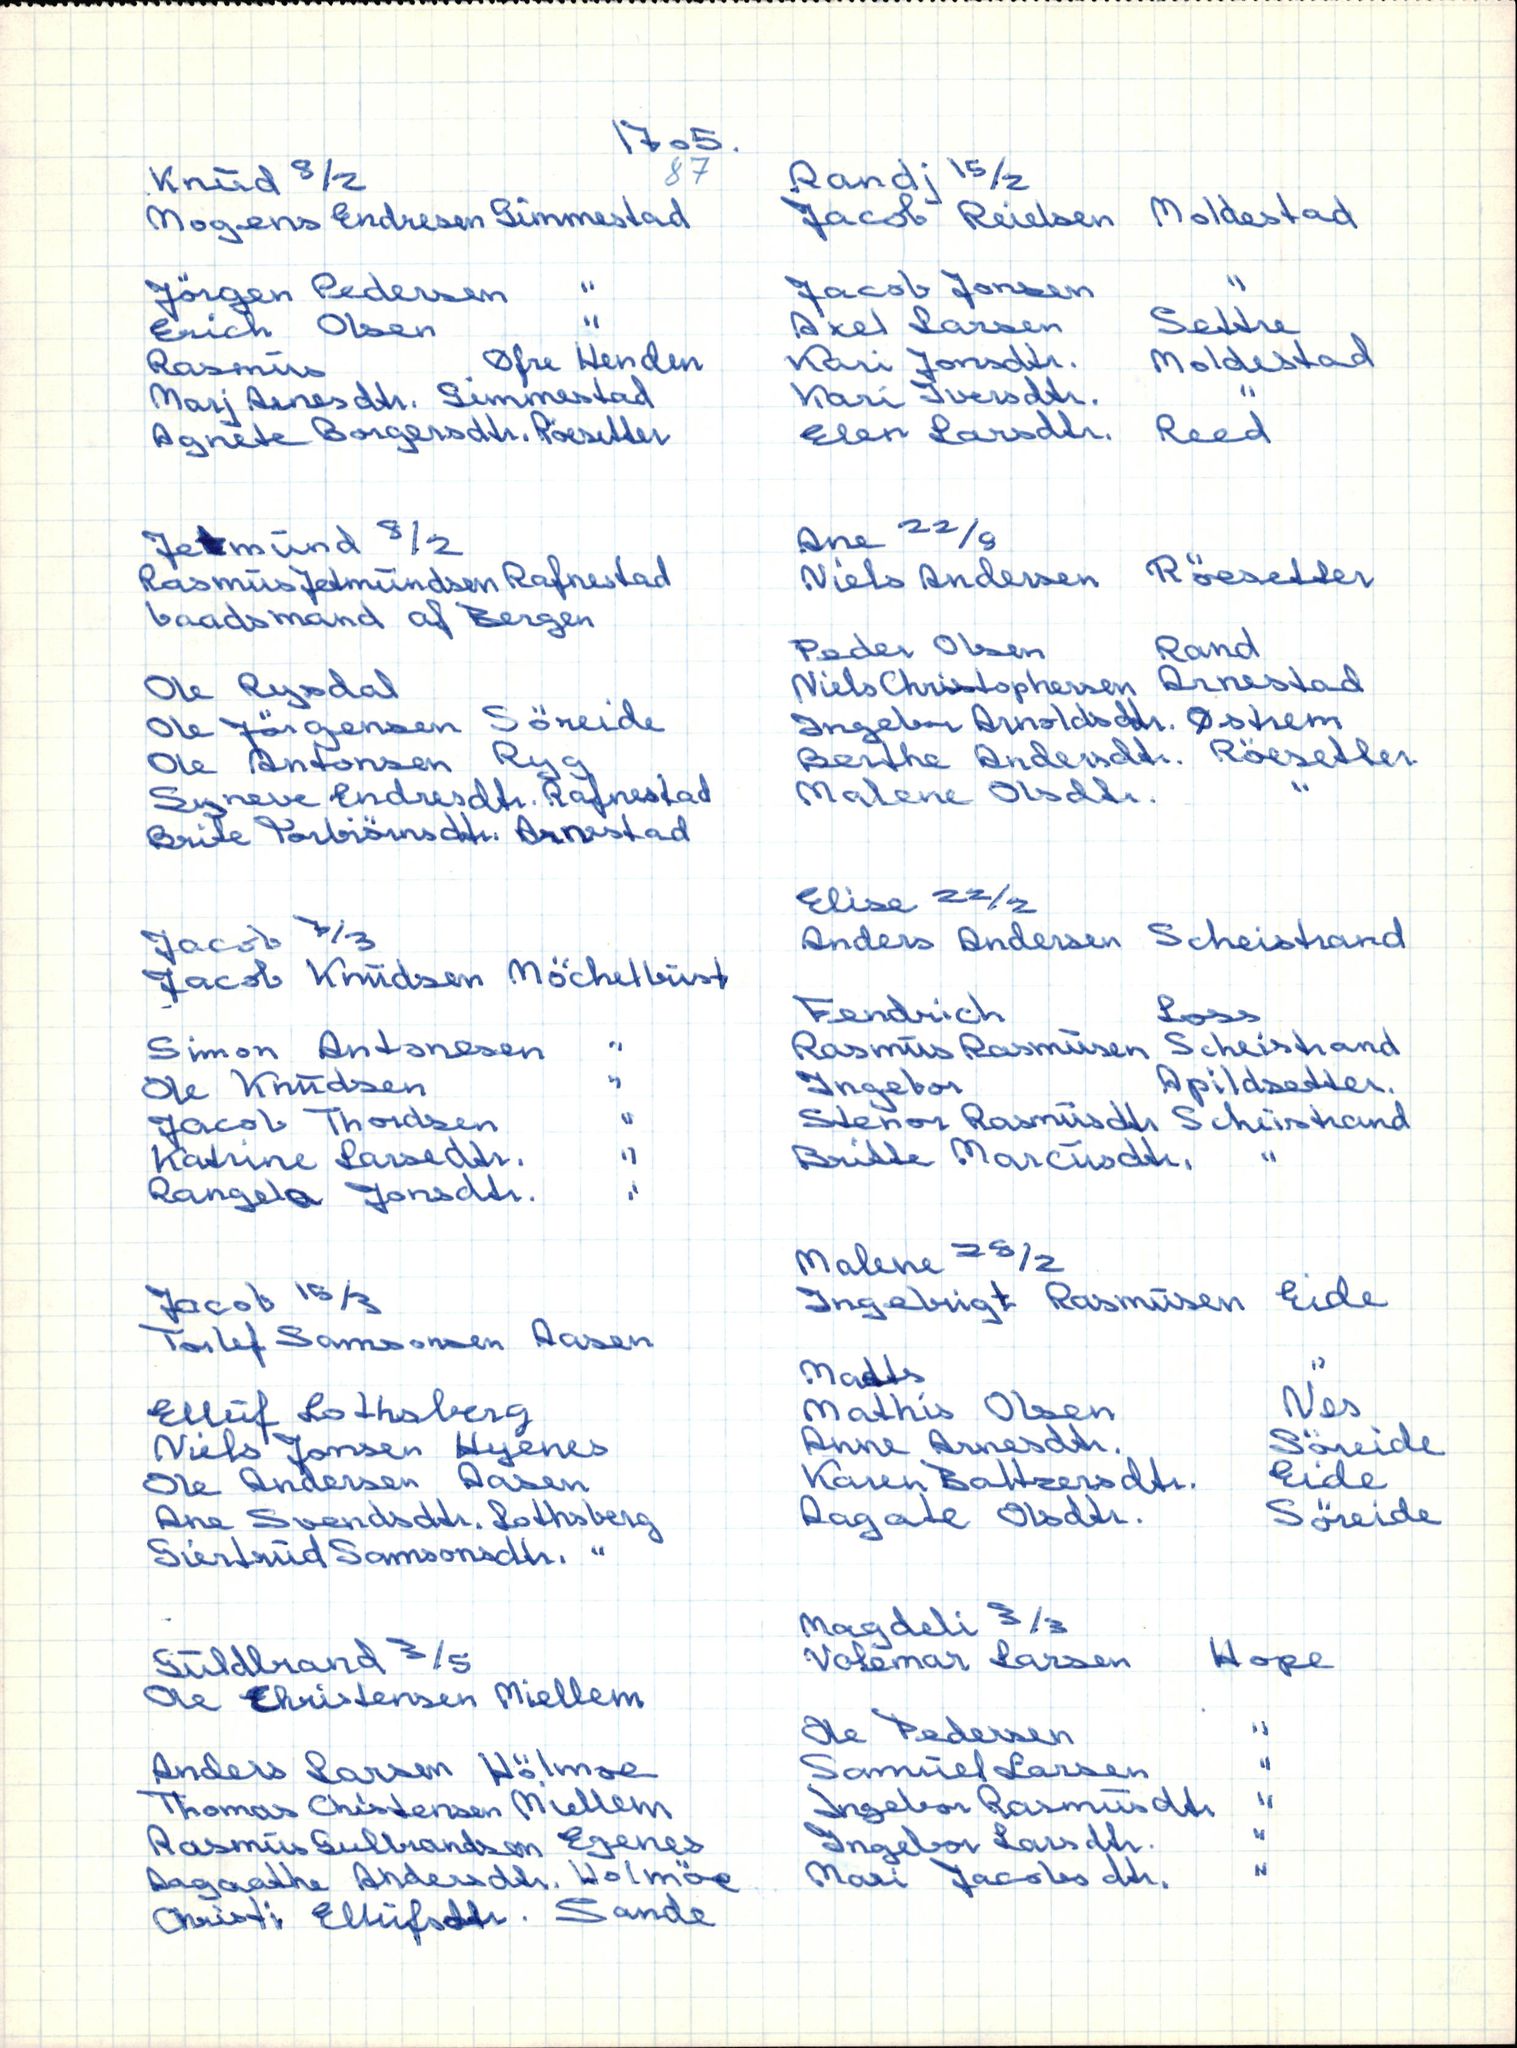 1705.
87
Knüd 8/2
Mogens Endresen Gimmestad
Jörgen Pedersen "
Erich Olsen "
Rasmüs Øfre Henden
Marj Arnesdtr. Gimmestad
Agnete Borgersdtr. Röesetter
Jetmünd 8/2
Rasmüs Jetmündsen Rafnestad
baadsmand af Bergen
Ole Rysdal
Ole Jörgensen Söreide
Ole Antonsen Ryg
Syneve Endresdtr. Rafnestad
Brite Torbiörnsdtr. Arnestad
Jacob 7/3
Jacob Knüdsen Möchelbüst
Simon Antonesen "
Ole Knüdsen "
Jacob Thordsen "
Katrine Larsedtr. "
Rangela Jonsdtr. "
Jacob 15/3
Torlef Samsonsen Aasen
Ellüf Lothsberg
Niels Jonsen Hyenes
Ole Andersen Aasen
Ane Svendsdtr. Lothsberg
Siertrüd Samsonsdtr. "
Güldbrand 3/5
Ole Christensen Miellem
Anders Larsen Hölmoe
Thomas Christensen Miellem
Rasmüs Gulbrandsen Egenes
Aagaathe Andersdtr. Holmöe
Christi Ellüfsdtr. Sande
Randj 15/2
Jacob Reielsen Moldestad
Jacob Jonsen "
Axel Larsen Settre
Kari Jonsdtr. Moldestad
Kari Iversdtr. "
Elen Larsdtr. Reed
Ane 22/9
Niels Andersen Röesetter
Peder Olsen Rand
Niels Christophersen Arnestad
Ingebor Arnoldsdtr. Østrem
Berthe Andersdtr. Röesetter
Malene Olsdtr. "
Elise 22/2
Anders Andersen Scheistrand
Fendrich Loss
Rasmüs Rasmüsen Scheistrand
Ingebor Apildsetter.
Stenor Rasmüsdtr Scheistrand
Britte Marcüsdtr. "
Malene 28/2
Ingebrigt Rasmüsen Eide
Madts "
Mathis Olsen Nes
Anne Arnesdtr. Söreide
Karen Baltzersdtr. Eide
Aagate Olsdtr. Söreide
Magdeli 3/3
Volemar Larsen Hope
Ole Pedersen "
Samüel Larsen "
Ingebor Rasmüsdtr "
Ingebor Larsdtr. "
Mari Jacobsdtr. "